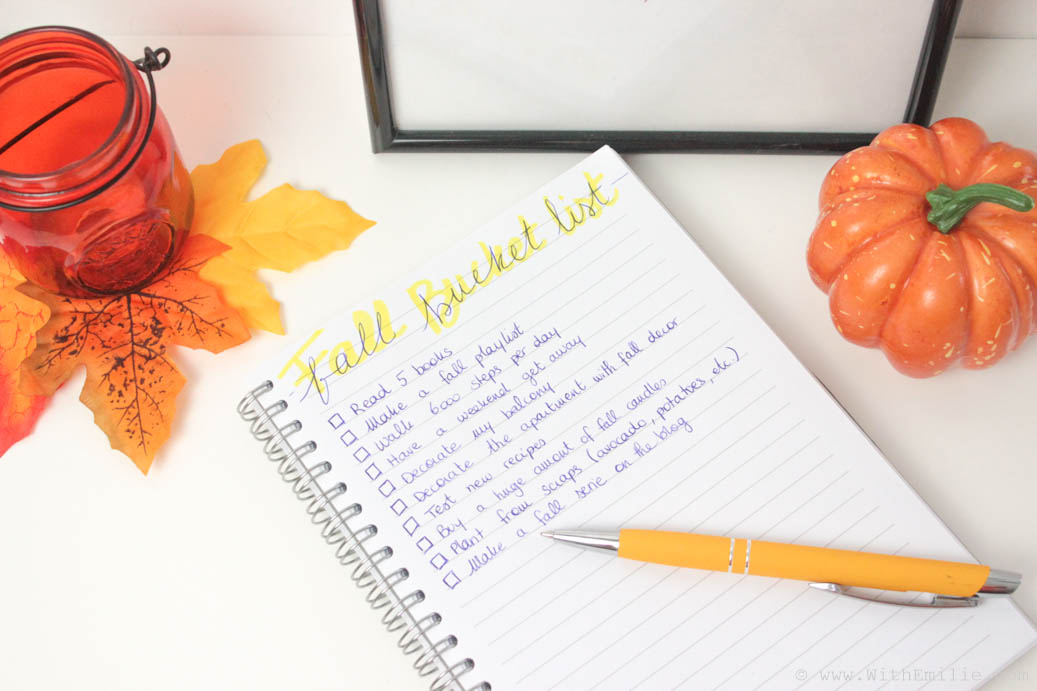 Fall Bucket list
fall bucket list
Read 5 books
Make a fall playlist
Walk 6000 steps per day
Have a weekend get away
Decorate my balcony
Decorate the apartment with fall decor
Test new recipes
Buy a huge amount of fall candles
Plant from scraps (avocado, potatoes, etc.)
Make a fall serie on the blog
© www.WithEmilie.com